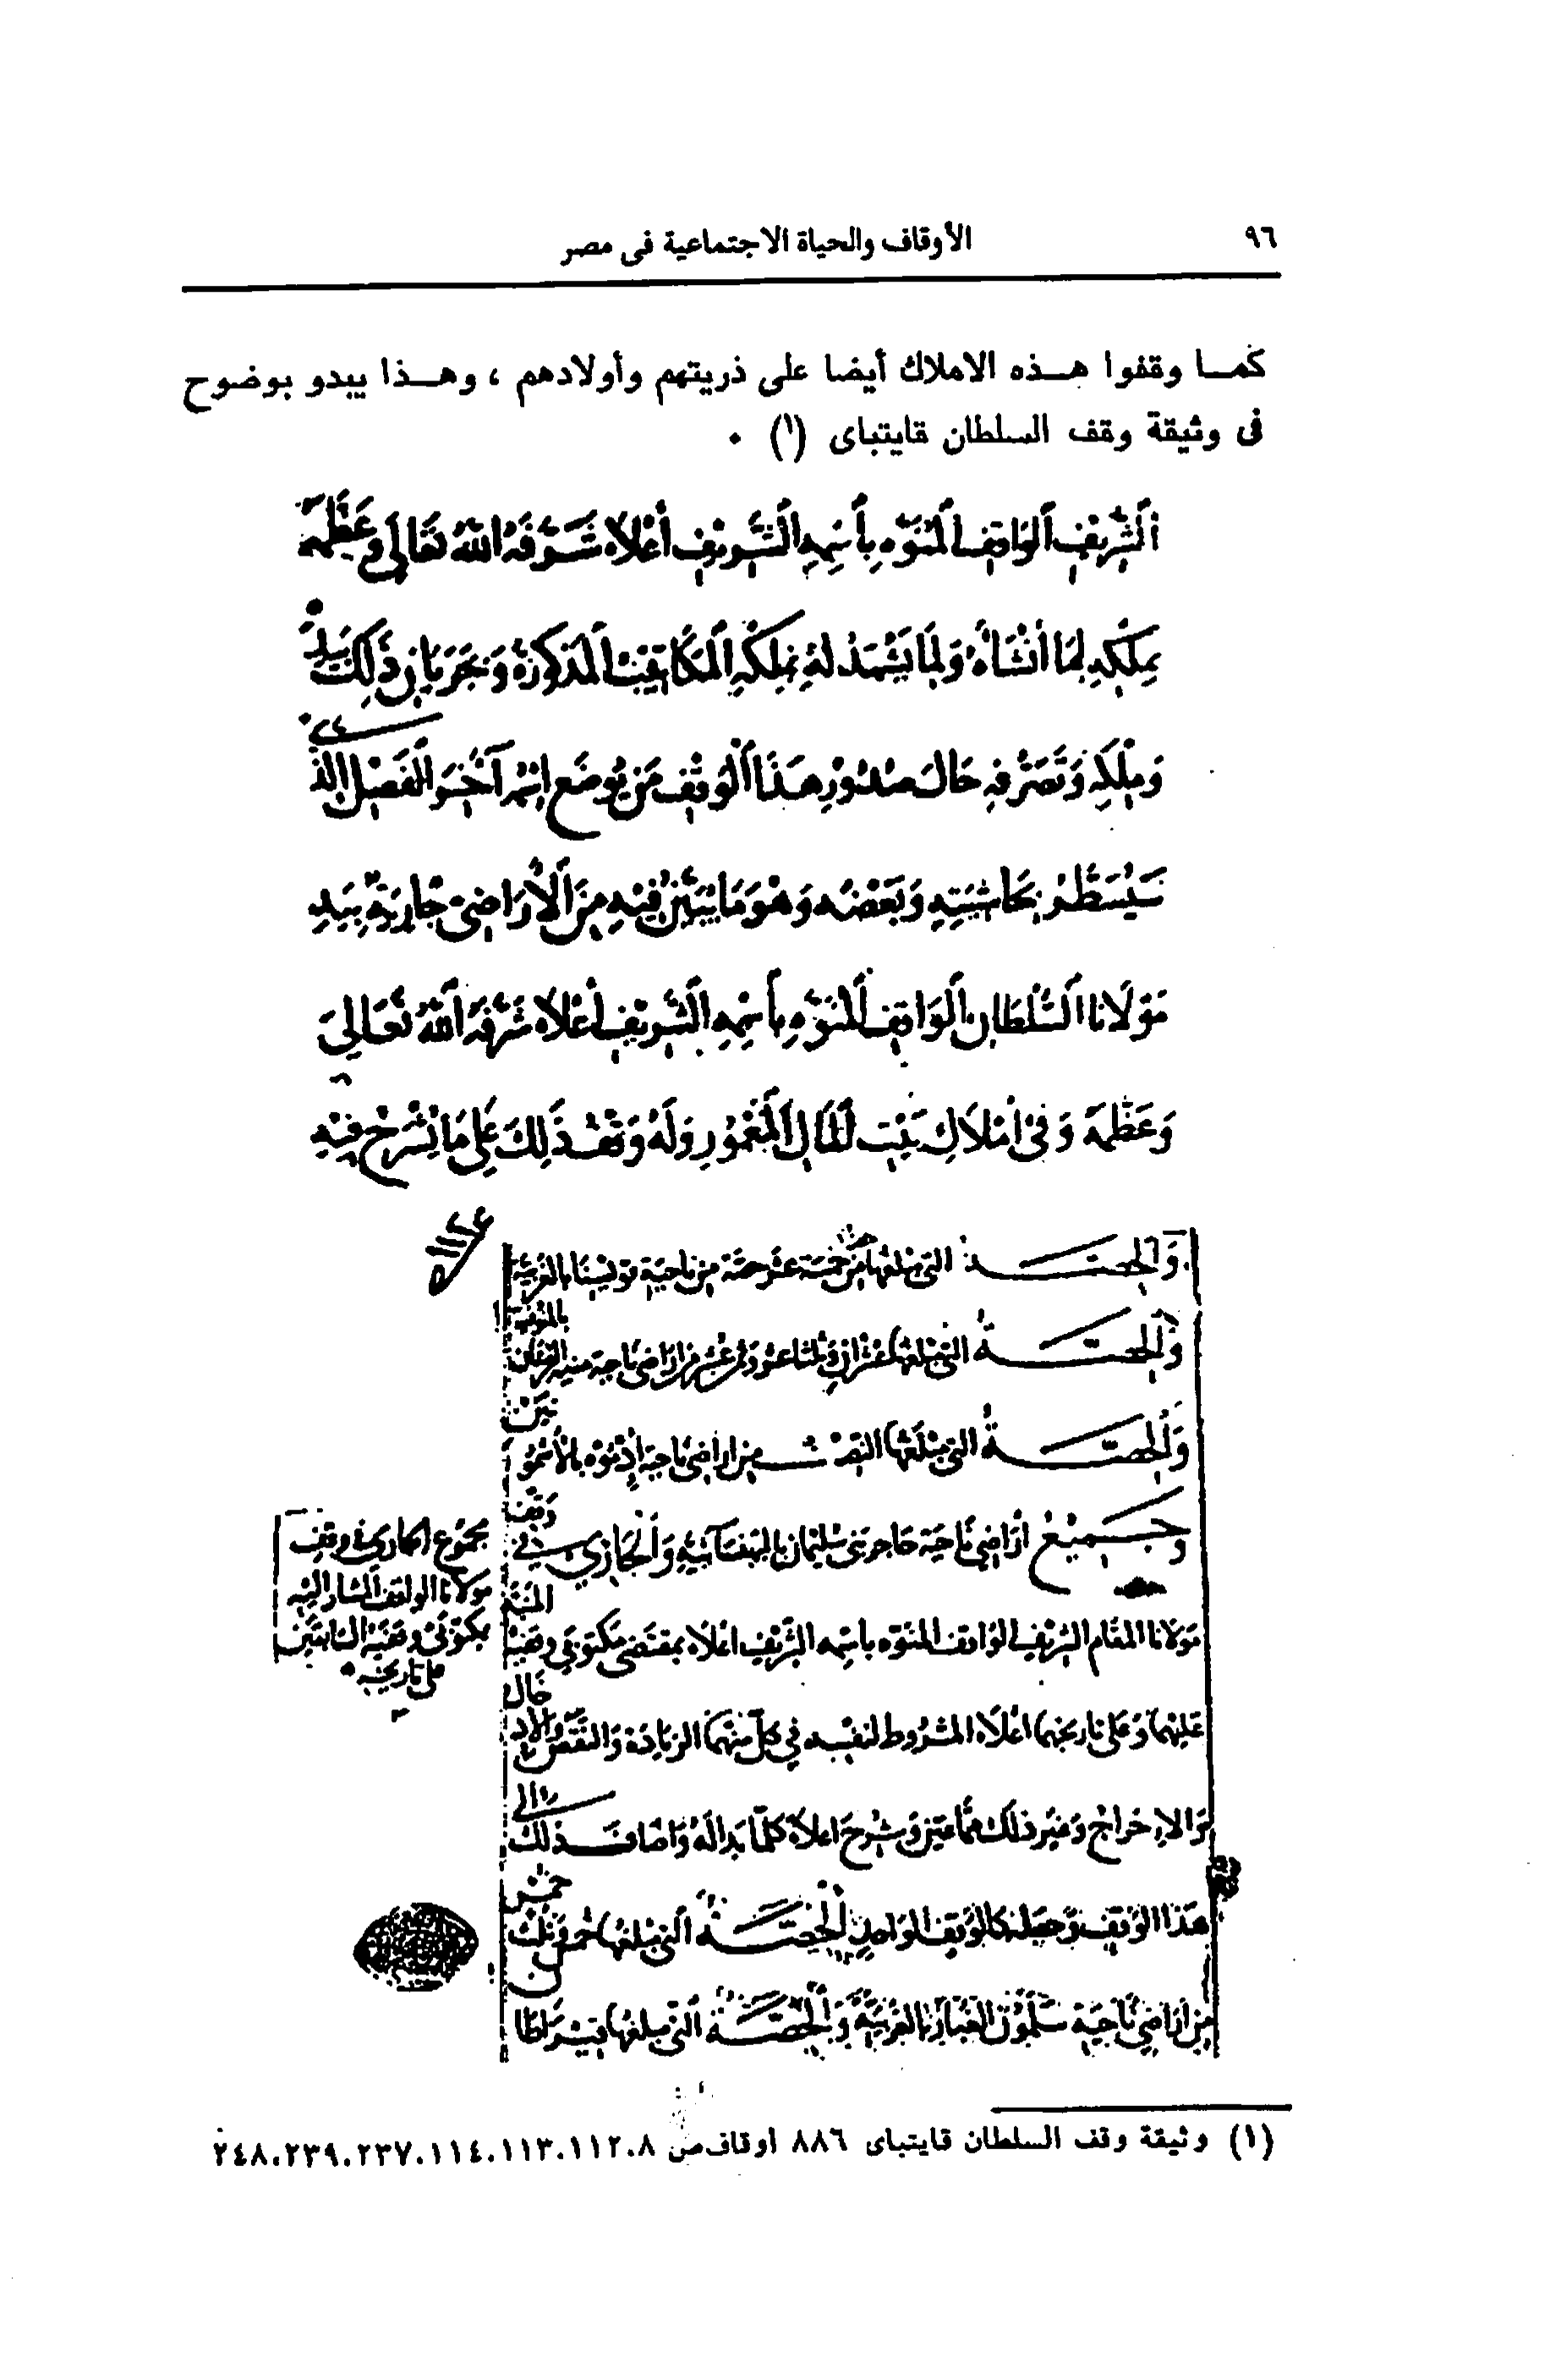 ٩٦
الأوقاف والحياة الاجتماعية فى مصر
كما وقفوا هذه الاملاك أيضا على ذريتهم وأولادهم ، وهذا يبدو بوضوح
فى وثيقة وقف السلطان قايتباى (١) .
الشَّرِيفِ الوَاقِفِ المُنَوَّهِ بِاسْمِهِ الشَّرِيفِ أعْلاَه شَرَّفَهُ اللهُ تَعَالَى وَعَظَّمَهُ
بمِلْكِهِ لِمَا أنْشَأَهُ وَلِمَا يَشْهَدُ لَهُ بِمِلْكِهِ المَكَاتِيبُ المَذكُورَةُ وَبجَرَيَانِ ذَلِكَ بيَدِهِ
وَمِلْكِهِ وَتَصَرُّفِهِ حَالَ صُدُورِ هَذَا الوَقْفِ مَن يُوضَع اِسْمُهُ آخَرَ الفَصْلِ الذى
سَيُسَطَّرُ بحَاشِيَتِهِ وَبَعْضُه وَهْوَ مَا يُبَيَّنُ فِيْهِ مِنَ الأَرَاضِى جَارِيَةٌ بِيَدِ
مَوْلَانَا السُّلْطَانِ الوَاقِفِ المُنَوَّهِ بِاسْمِهِ الشَّرِيفِ أعْلاَه شَرَّفَهُ اللهُ تَعَالى
وَعَظَّمَهُ وَفى أمْلاَكِ بَيْتِ المَالِ المَعْمُورِ وَلَهُ وَقْفُ ذَلِكَ عَلى مَا يُشْرَح فِيْهِ
وَالحِصَّةُ التى مبلغها من خمسة عشر حصة من ناحية بالغربية
بالمنوفية
وَالحِصَّةُ التى مبلغها من اراضى ناحية منية
وَالحِصَّةُ التى مَبْلَغُها النصف من اراضى ناحية بالأشمو
نين
وَجَمِيْعُ أرَاضِى نَاحِيَة حَاجر بنى سُليمان بالبهنسَائيةِ وَالجَارى فى
وَقْف
مَولانا المقام الشريف الوَاقف المنوّه باسْمه الشَّريف اعْلاَه بمقتضى مَكتوبَى وقفيه
عَليْهمَا وَعَلى تاريخهما اعْلاَه المشرُوط لنفسه فى كل منهمَا الزيَادَة وَالنقص وَالادخال
وَالاِخراج وَغَير ذلك ممّا عيّن وَشرحَ اعلاه كلما بدَا لَهُ وَاضاف ذلك
الى
هَذا الوَقف وَجعَلهُ كالوَقف الوَاحد الحِصَّةُ التى مبلغها
خمس
من ارَاضى نَاحية سَلَمُون الغُبَار بالغربيّة وَالحِصَّةُ التى مبلغها
مجموع الجارى فى وقف
مولانا الواقف المشار اليه
بمكتوبَى وقفيه الثابتين
على تاريخه
(١) وثيقة وقف السلطان قايتباى ٨٨٦ اوقاف ص ٨،١١٢،١١٣،١١٤،٢٣٧،٢٣٩،٢٤٨